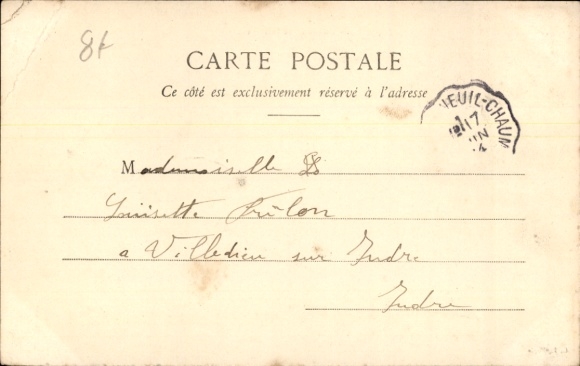 8f
CARTE POSTALE
Ce côté est exclusivement réservé à l'adresse
EUIL-CHAUM
17
IN
Mademoiselle
Louisette
a Villedieu sur Indre
Indre